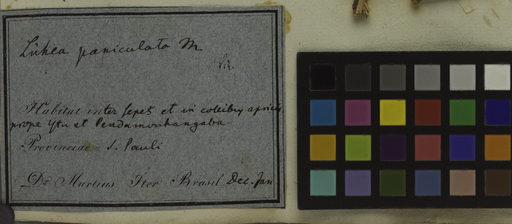 Lühea paniculata M.
Habitat inter sepes et in collibus apricis
prope Ytu et Pendamonhangaba
Provinciae S. Pauli
Dr Martius Iter Brasil Dec. Jan